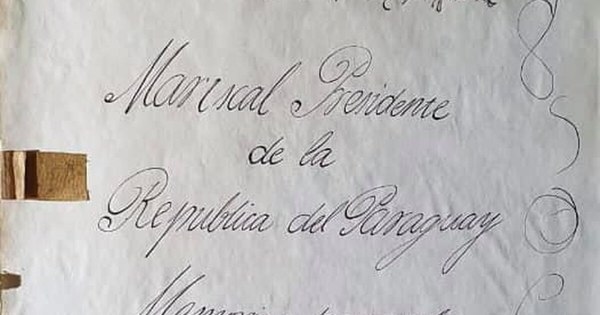 Mariscal Presidente
de la
Republica del Paraguay